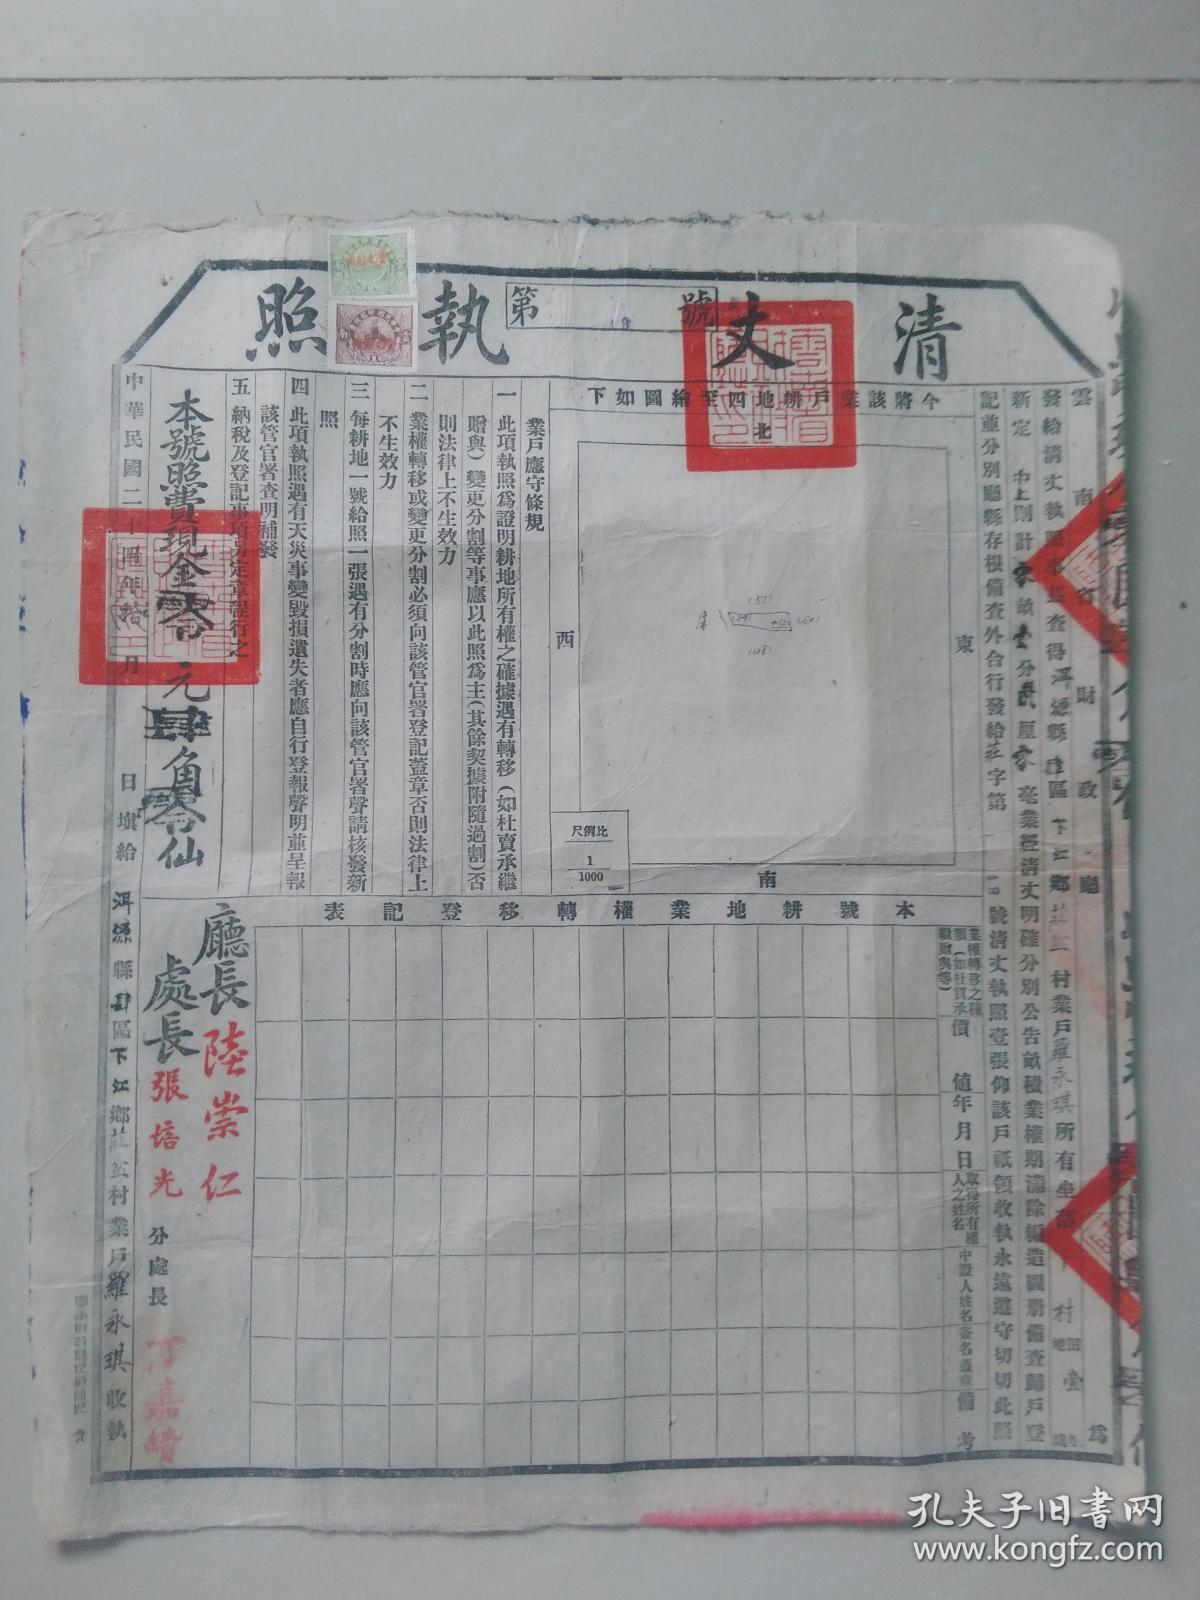 清丈執照
第 號
雲南省財政廳 為
發給清丈執照事茲查得洱源縣肆區下江鄉莊 村業戶羅永琪所有坐落 村田地壹
新定中上則計零畝壹分 厘零毫業經清丈明確分別公告畝積業權期滿除編造圖册備查歸戶登
記並分別廳縣存根備查外合行發給莊字第 號清丈執照壹張仰該戶祇領收執永遠遵守切切此照
今將該業戶耕地四至繪圖如下
北
東
西
南
比例尺
1
1000
業戶應守條規
一 此項執照為證明耕地所有權之確據遇有轉移(如杜賣承繼
贈與)變更分割等事應以此照為主(其餘契據附隨過割)否
則法律上不生效力
二 業權轉移或變更分割必須向該管官署登記蓋章否則法律上
不生效力
三 每耕地一號給照一張遇有分割時應向該管官署聲請核發新
照
四 此項執照遇有天災事變毀損遺失者應自行登報聲明並呈報
該管官署查明補發
五 納稅及登記事項另定章程行之
本號耕地業權轉移登記表
業權轉移之種類(如杜買承繼贈與等)
價值
年月日
取得所有權人之姓名
中證人姓名
簽名蓋章
備考
本號照費現金零元肆角零仙
廳長 陸崇仁
處長 張培光
分處長 丁嘉績
中華民國二十四年拾 月 日填給 洱源縣肆區下江鄉莊 村業戶羅永琪收執
孔夫子旧书网
www.kongfz.com